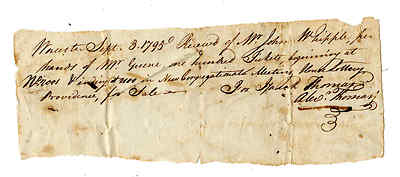 Worcester Sept. 3. 1795. Received of Mr John Whipple, per
hands of Mr Greene one hundred Tickets, beginning at
No ending in New Congregational Meeting House Lottery
Providence, for Sale — For Thomas
Alexr Thomas